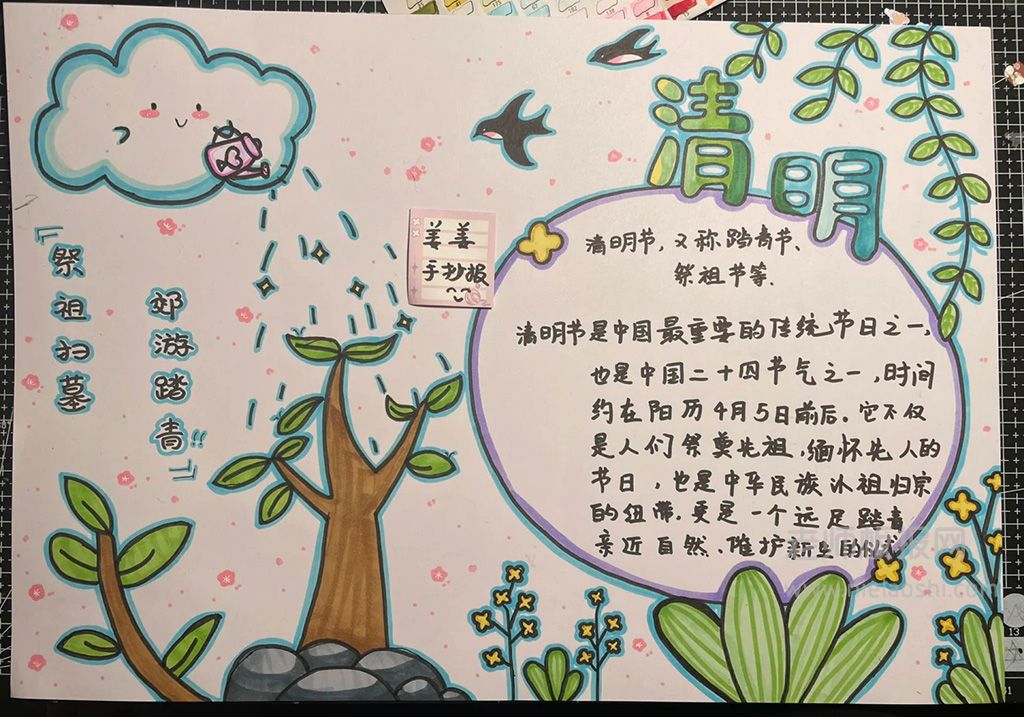 清明
『祭祖扫墓
郊游踏青!!』
姜姜
手抄报
清明节，又称踏青节、
祭祖节等.
清明节是中国最重要的传统节日之一，
也是中国二十四节气之一，时间
约在阳历4月5日前后。它不仅
是人们祭奠先祖，缅怀先人的
节日，也是中华民族认祖归宗
的纽带，更是一个远足踏青
亲近自然、
13